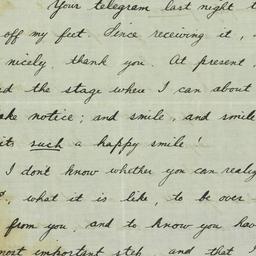 Your telegram last night t
off my feet. Since receiving it,
nicely, thank you. At present,
d the stage where I can about
ake notice; and smile, and smile
its such a happy smile!
I don't know whether you can realiz
, what it is like, to be over
from you, and to know you hav
most important step and that